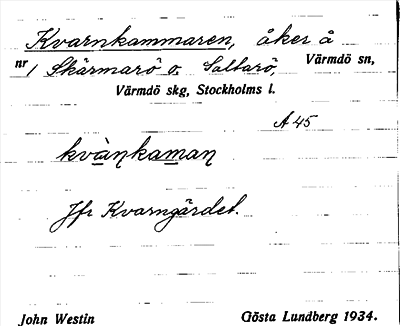 Kvarnkammaren, åker å
nr 1 Skärmarö o. Saltarö, Värmdö sn,
Värmdö skg, Stockholms l.
A 45
kvàɳkamaɳ
Jfr Kvarngärdet.
John Westin Gösta Lundberg 1934.